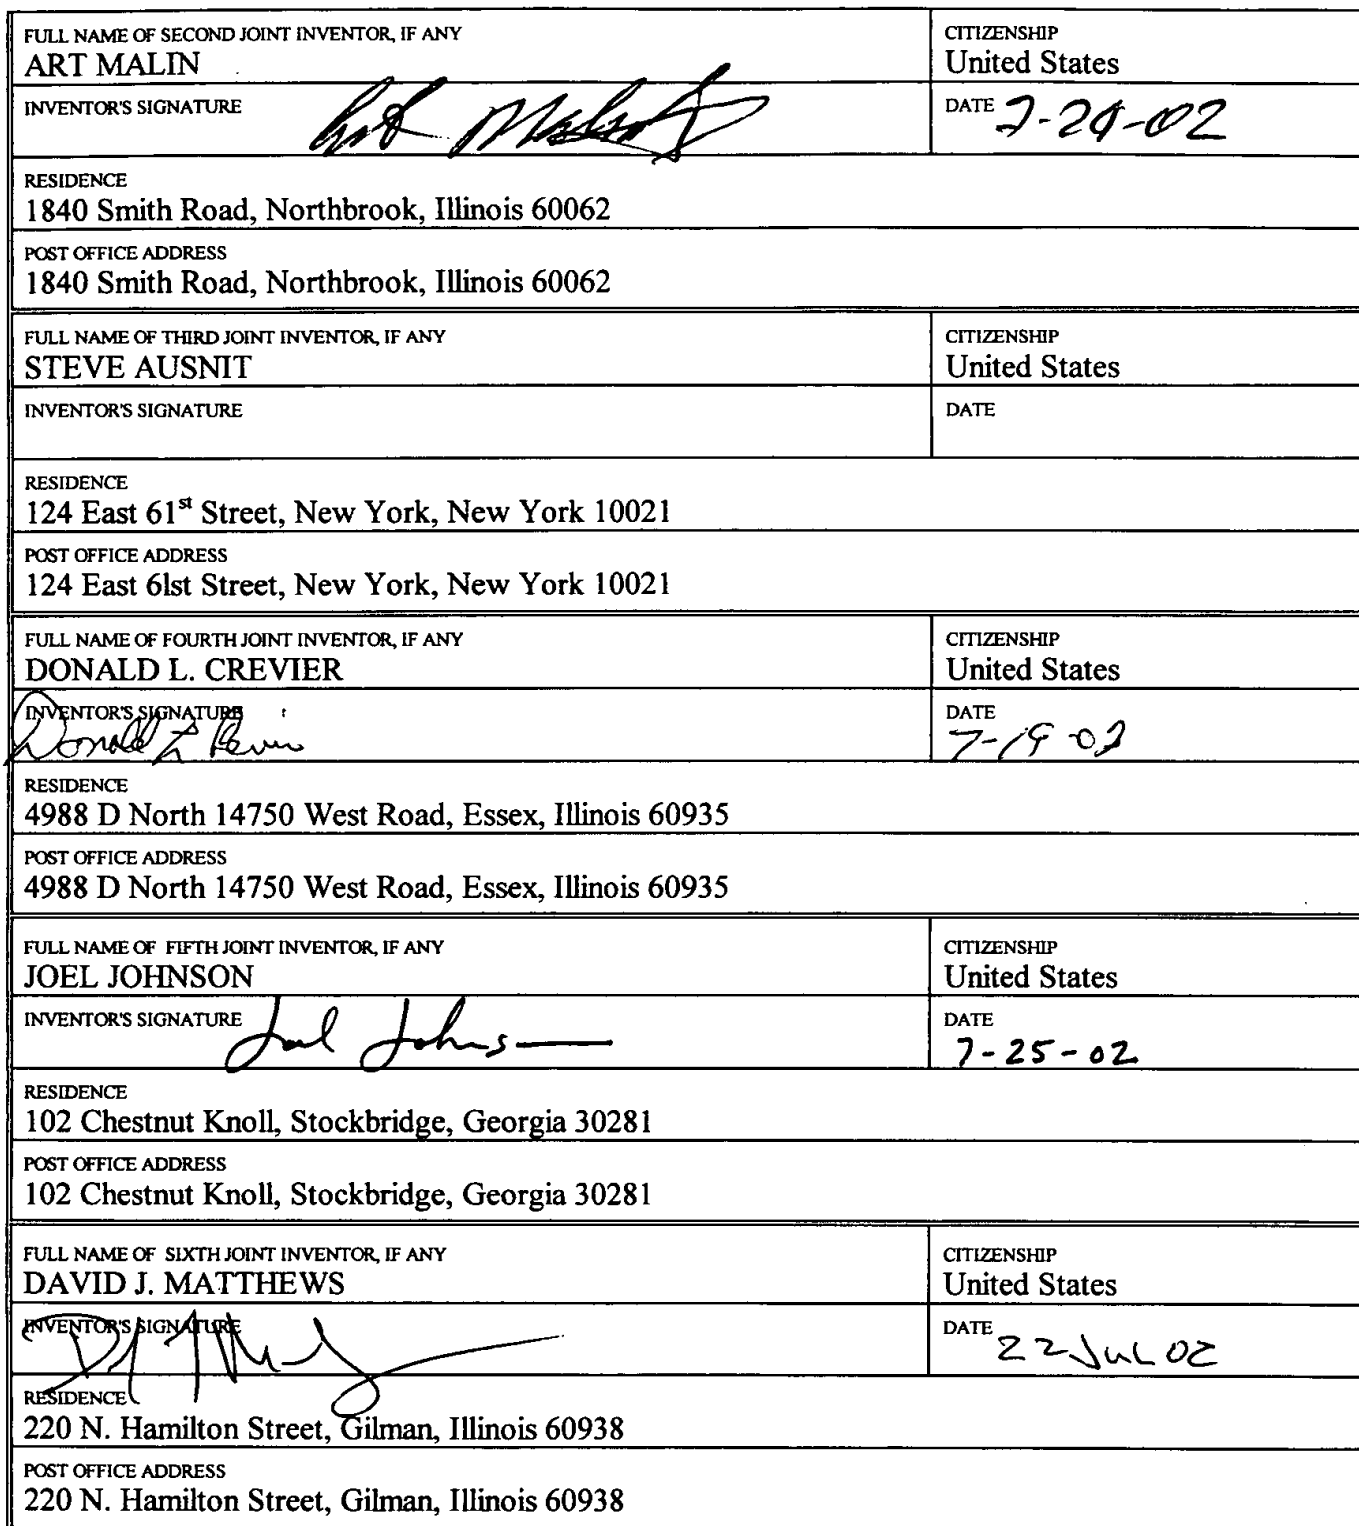 FULL NAME OF SECOND JOINT INVENTOR, IF ANY
ART MALIN
CITIZENSHIP
United States
INVENTOR'S SIGNATURE
Art Malin
DATE
-02
RESIDENCE
1840 Smith Road, Northbrook, Illinois 60062
POST OFFICE ADDRESS
1840 Smith Road, Northbrook, Illinois 60062
FULL NAME OF THIRD JOINT INVENTOR, IF ANY
STEVE AUSNIT
CITIZENSHIP
United States
INVENTOR'S SIGNATURE
DATE
RESIDENCE
124 East 61st Street, New York, New York 10021
POST OFFICE ADDRESS
124 East 6lst Street, New York, New York 10021
FULL NAME OF FOURTH JOINT INVENTOR, IF ANY
DONALD L. CREVIER
CITIZENSHIP
United States
INVENTOR'S SIGNATURE
Donald L Crevier
DATE
7-19-02
RESIDENCE
4988 D North 14750 West Road, Essex, Illinois 60935
POST OFFICE ADDRESS
4988 D North 14750 West Road, Essex, Illinois 60935
FULL NAME OF FIFTH JOINT INVENTOR, IF ANY
JOEL JOHNSON
CITIZENSHIP
United States
INVENTOR'S SIGNATURE
Joel Johnson
DATE
7-25-02
RESIDENCE
102 Chestnut Knoll, Stockbridge, Georgia 30281
POST OFFICE ADDRESS
102 Chestnut Knoll, Stockbridge, Georgia 30281
FULL NAME OF SIXTH JOINT INVENTOR, IF ANY
DAVID J. MATTHEWS
CITIZENSHIP
United States
INVENTOR'S SIGNATURE
DATE
22 JUL 02
RESIDENCE
220 N. Hamilton Street, Gilman, Illinois 60938
POST OFFICE ADDRESS
220 N. Hamilton Street, Gilman, Illinois 60938